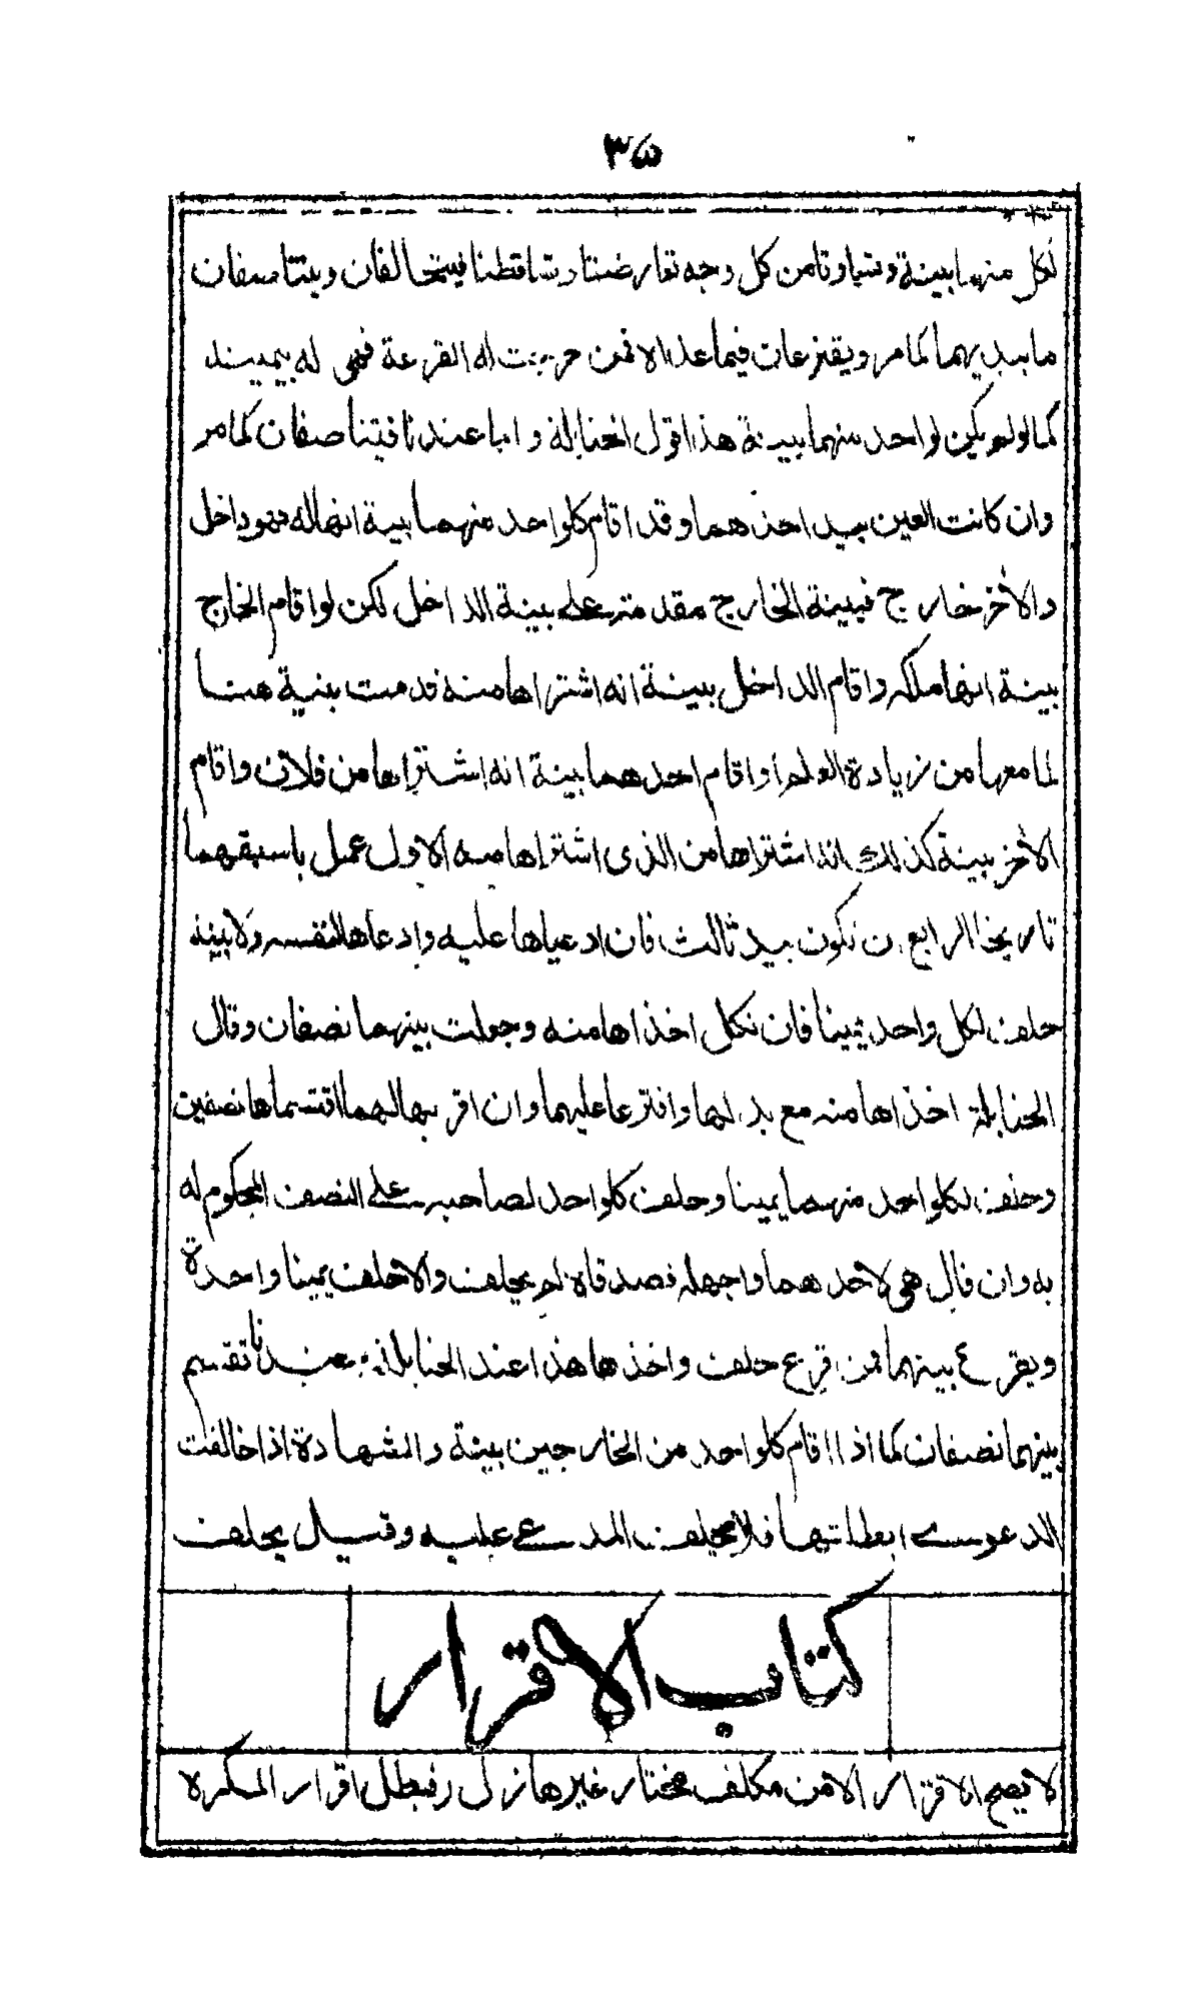 ٣٥
لكل منهما بينة وتساوتا من كل وجه تعارضتا وتساقطتا فيتحالفان ويتناصفان
ما بيديهما كما مر ويقترعان فيما عداه فمن خرجت له القرعة فهى له بيمينه
كما لو لم يكن لواحد منهما بينة هذا قول الحنابلة واما عندنا فيتناصفان كما مر
وان كانت العين بيد احدهما وقد اقام كلواحد منهما بينة انها له فهو داخل
والآخر خارج فبينة الخارج مقدمة على بينة الداخل لكن لو اقام الخارج
بينة انها ملكه واقام الداخل بينة انه اشتراها منه قدمت بنية هنا
لما معها من زيادة العلم او اقام احدهما بينة انه اشتراها من فلان واقام
الآخر بينة كذلك انه اشتراها من الذى اشتراها منه الاول عمل باسبقهما
تاريخا الرابع ان تكون بيد ثالث فان ادعياها عليه وادعاها لنفسه ولا بينه
حلف لكل واحد يمينا فان نكل اخذاها منه وجعلت بينهما نصفان وقال
الحنابلة اخذاها منه مع بدلها واقترعا عليهما وان اقر بها لهما اقتسماها نصفين
وحلف لكلواحد منهما يمينا وحلف كلواحد لصاحبه على النصف المحكوم له
به وان قال هى لاحدهما واجهله فصدقاه لم يحلف والا حلف يمينا واحدة
ويقرع بينهما فمن قرع حلف واخذها هذا عند الحنابلة وعندنا تقسم
بينهما نصفان كما اذا اقام كلواحد من الخارجين بينة والشهادة اذا خالفت
الدعوى ابطلتها فلا يحلف المدعى عليه وقيل يحلف
كتاب الاقرار
لا يصح الاقرار الا من مكلف مختار غير هازل فبطل اقرار المكره